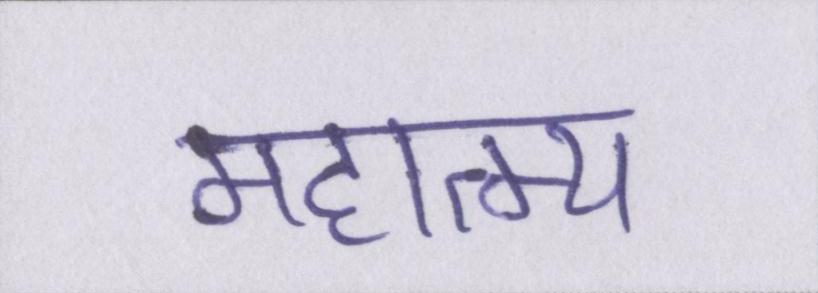 महात्म्य